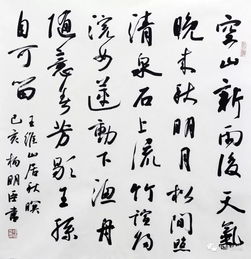 空山新雨後天氣
晚来秋明月松間照
清泉石上流竹諠歸
浣女蓮動下漁舟
随意春芳歇王孫
自可留
王維山居秋暝
己亥楊明臣書